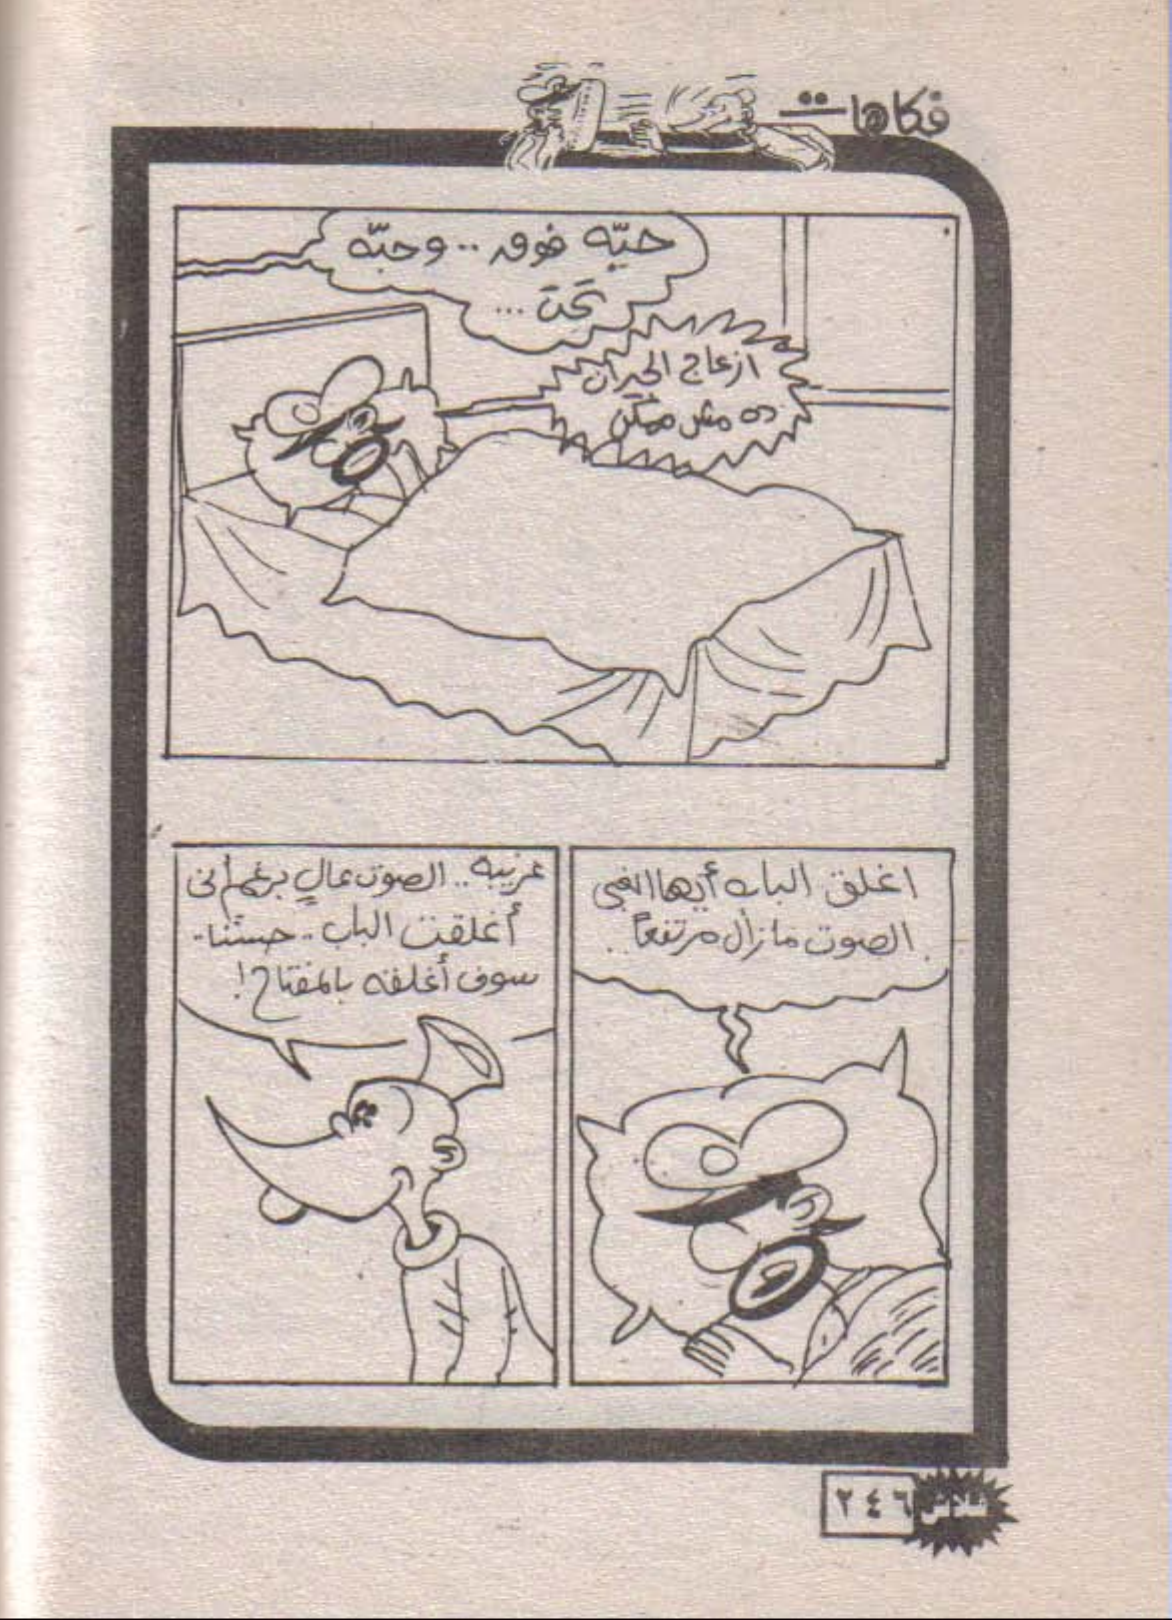 فكاهات
حبّه فوق .. وحبّه
تحت ...
ازعاج الجيران
ده مش ممكن
اغلق الباب أيها الغبى
الصوت مازال مرتفعاً ..
غريبه .. الصوت عالٍ برغم أنى
أغلقت الباب .. حسنًا ..
سوف أغلقه بالمفتاح !
فلاش ٢٤٦